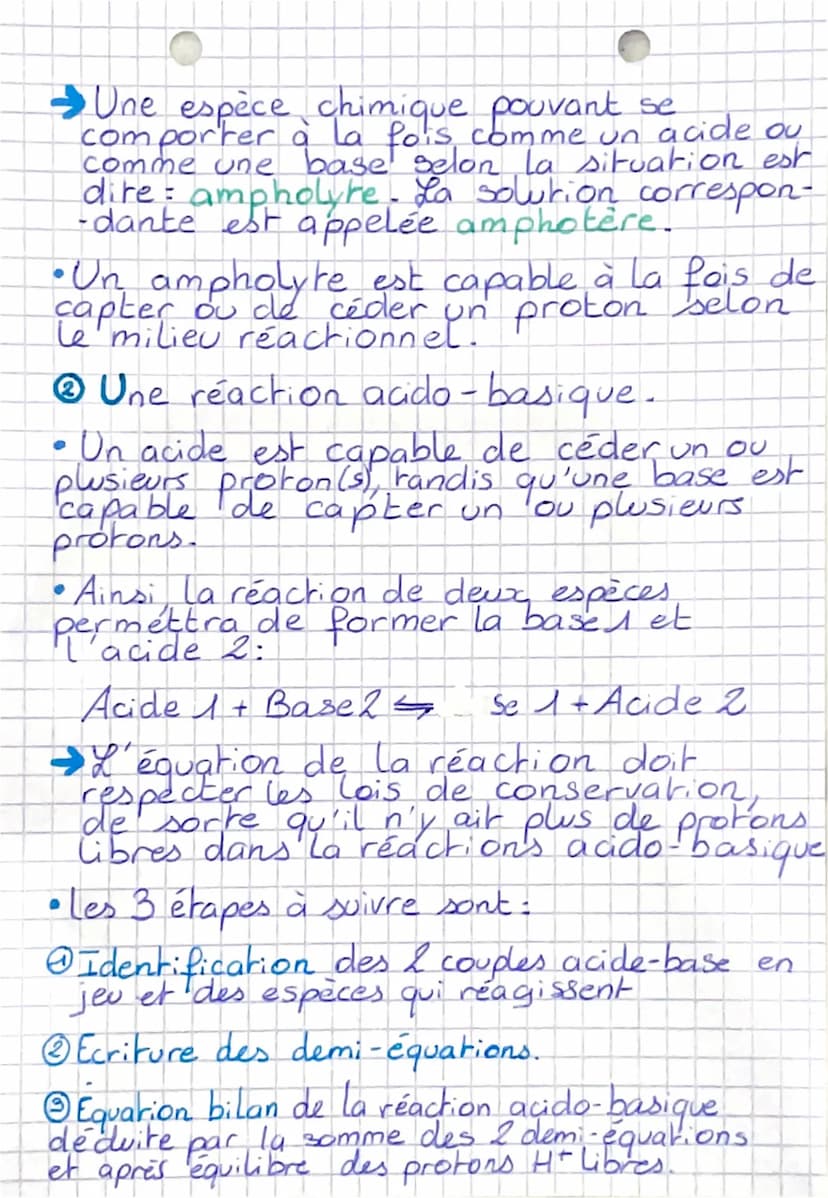 → Une espèce chimique pouvant se
comporter à la fois comme un acide ou
comme une base selon la situation est
dite : ampholyte. La solution correspon-
-dante est appelée amphotère.
• Un ampholyte est capable à la fois de
capter ou de céder un proton selon
le milieu réactionnel.
② Une réaction acido-basique.
• Un acide est capable de céder un ou
plusieurs proton(s), tandis qu'une base est
capable de capter un ou plusieurs
protons.
• Ainsi, la réaction de deux espèces
permettra de former la base 1 et
l'acide 2:
Acide 1 + Base 2 ⇋ se 1 + Acide 2
→ L'équation de la réaction doit
respecter les lois de conservation,
de sorte qu'il n'y ait plus de protons
libres dans la réactions acido-basique
• les 3 étapes à suivre sont :
① Identification des 2 couples acide-base en
jeu et des espèces qui réagissent
② Ecriture des demi-équations.
③ Equation bilan de la réaction acido-basique
déduite par la somme des 2 demi-équations
et après équilibre des protons H+ libres.